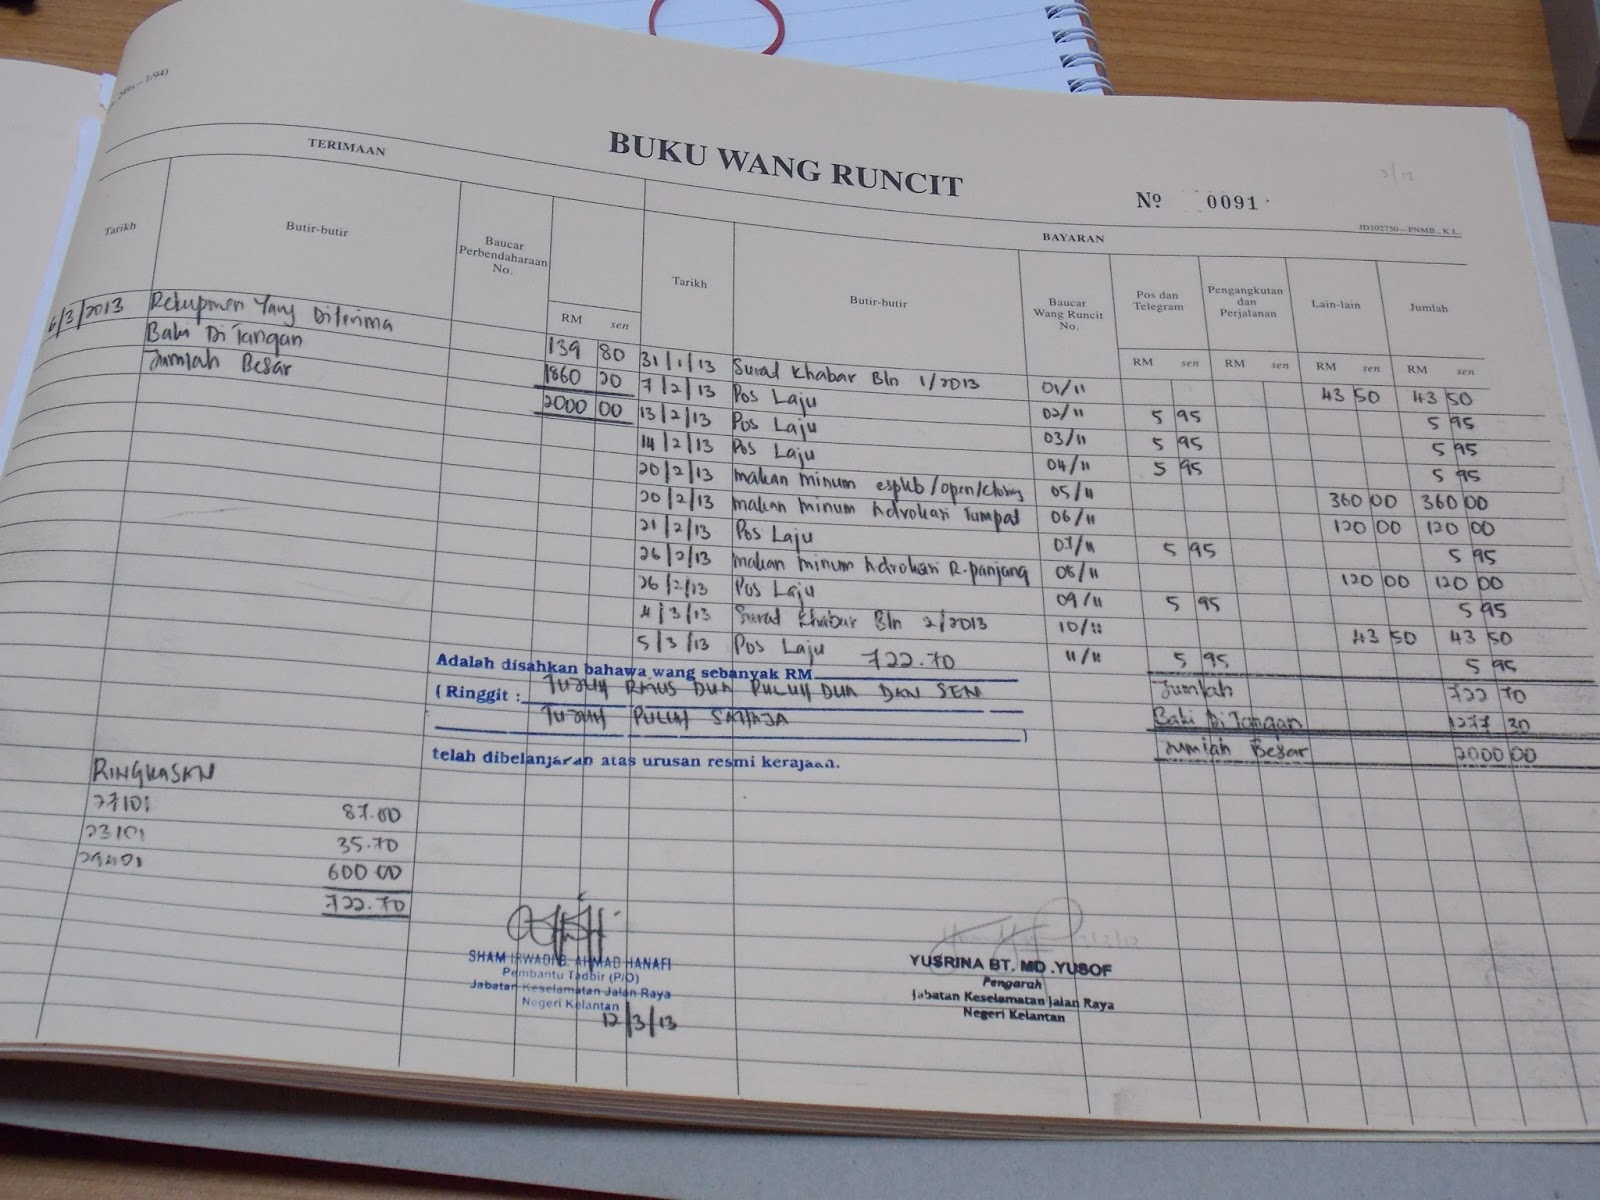 BUKU WANG RUNCIT
Nº 0091
JD102750—PNMB., K.L.
TERIMAAN
BAYARAN
Tarikh Butir-butir Baucar Perbendaharaan No. RM sen
Tarikh Butir-butir Baucar Wang Runcit No. Pos dan Telegram Pengangkutan dan Perjalanan Lain-lain Jumlah
RM sen RM sen RM sen RM sen
6/3/2013 Rekupmen Yang Diterima 139 80
Baki Di Tangan 1860 20
Jumlah Besar 2000 00
31/1/13 Surat Khabar Bln 1/2013 01/11 43 50 43 50
7/2/13 Pos Laju 02/11 5 95 5 95
13/2/13 Pos Laju 03/11 5 95 5 95
14/2/13 Pos Laju 04/11 5 95 5 95
20/2/13 makan minum 05/11 360 00 360 00
20/2/13 makan minum Advokasi Tumpat 06/11 120 00 120 00
21/2/13 Pos Laju 07/11 5 95 5 95
26/2/13 makan minum Advokasi R-panjang 08/11 120 00 120 00
26/2/13 Pos Laju 09/11 5 95 5 95
4/3/13 Surat Khabar Bln 2/2013 10/11 43 50 43 50
5/3/13 Pos Laju 11/11 5 95 5 95
Jumlah 722 70
Baki Di Tangan 1277 30
Jumlah Besar 2000 00
Adalah disahkan bahawa wang sebanyak RM 722.70
(Ringgit : TUJUH RATUS DUA PULUH DUA DAN SEN
TUJUH PULUH SAHAJA )
telah dibelanjakan atas urusan resmi kerajaan.
RINGKASAN
27101 87.00
23101 35.70
29401 600.00
722.70
SHAM IRWADI B. AHMAD HANAFI
Pembantu Tadbir (P/O)
Jabatan Keselamatan Jalan Raya
Negeri Kelantan
12/3/13
YUSRINA BT. MD .YUSOF
Pengarah
Jabatan Keselamatan Jalan Raya
Negeri Kelantan